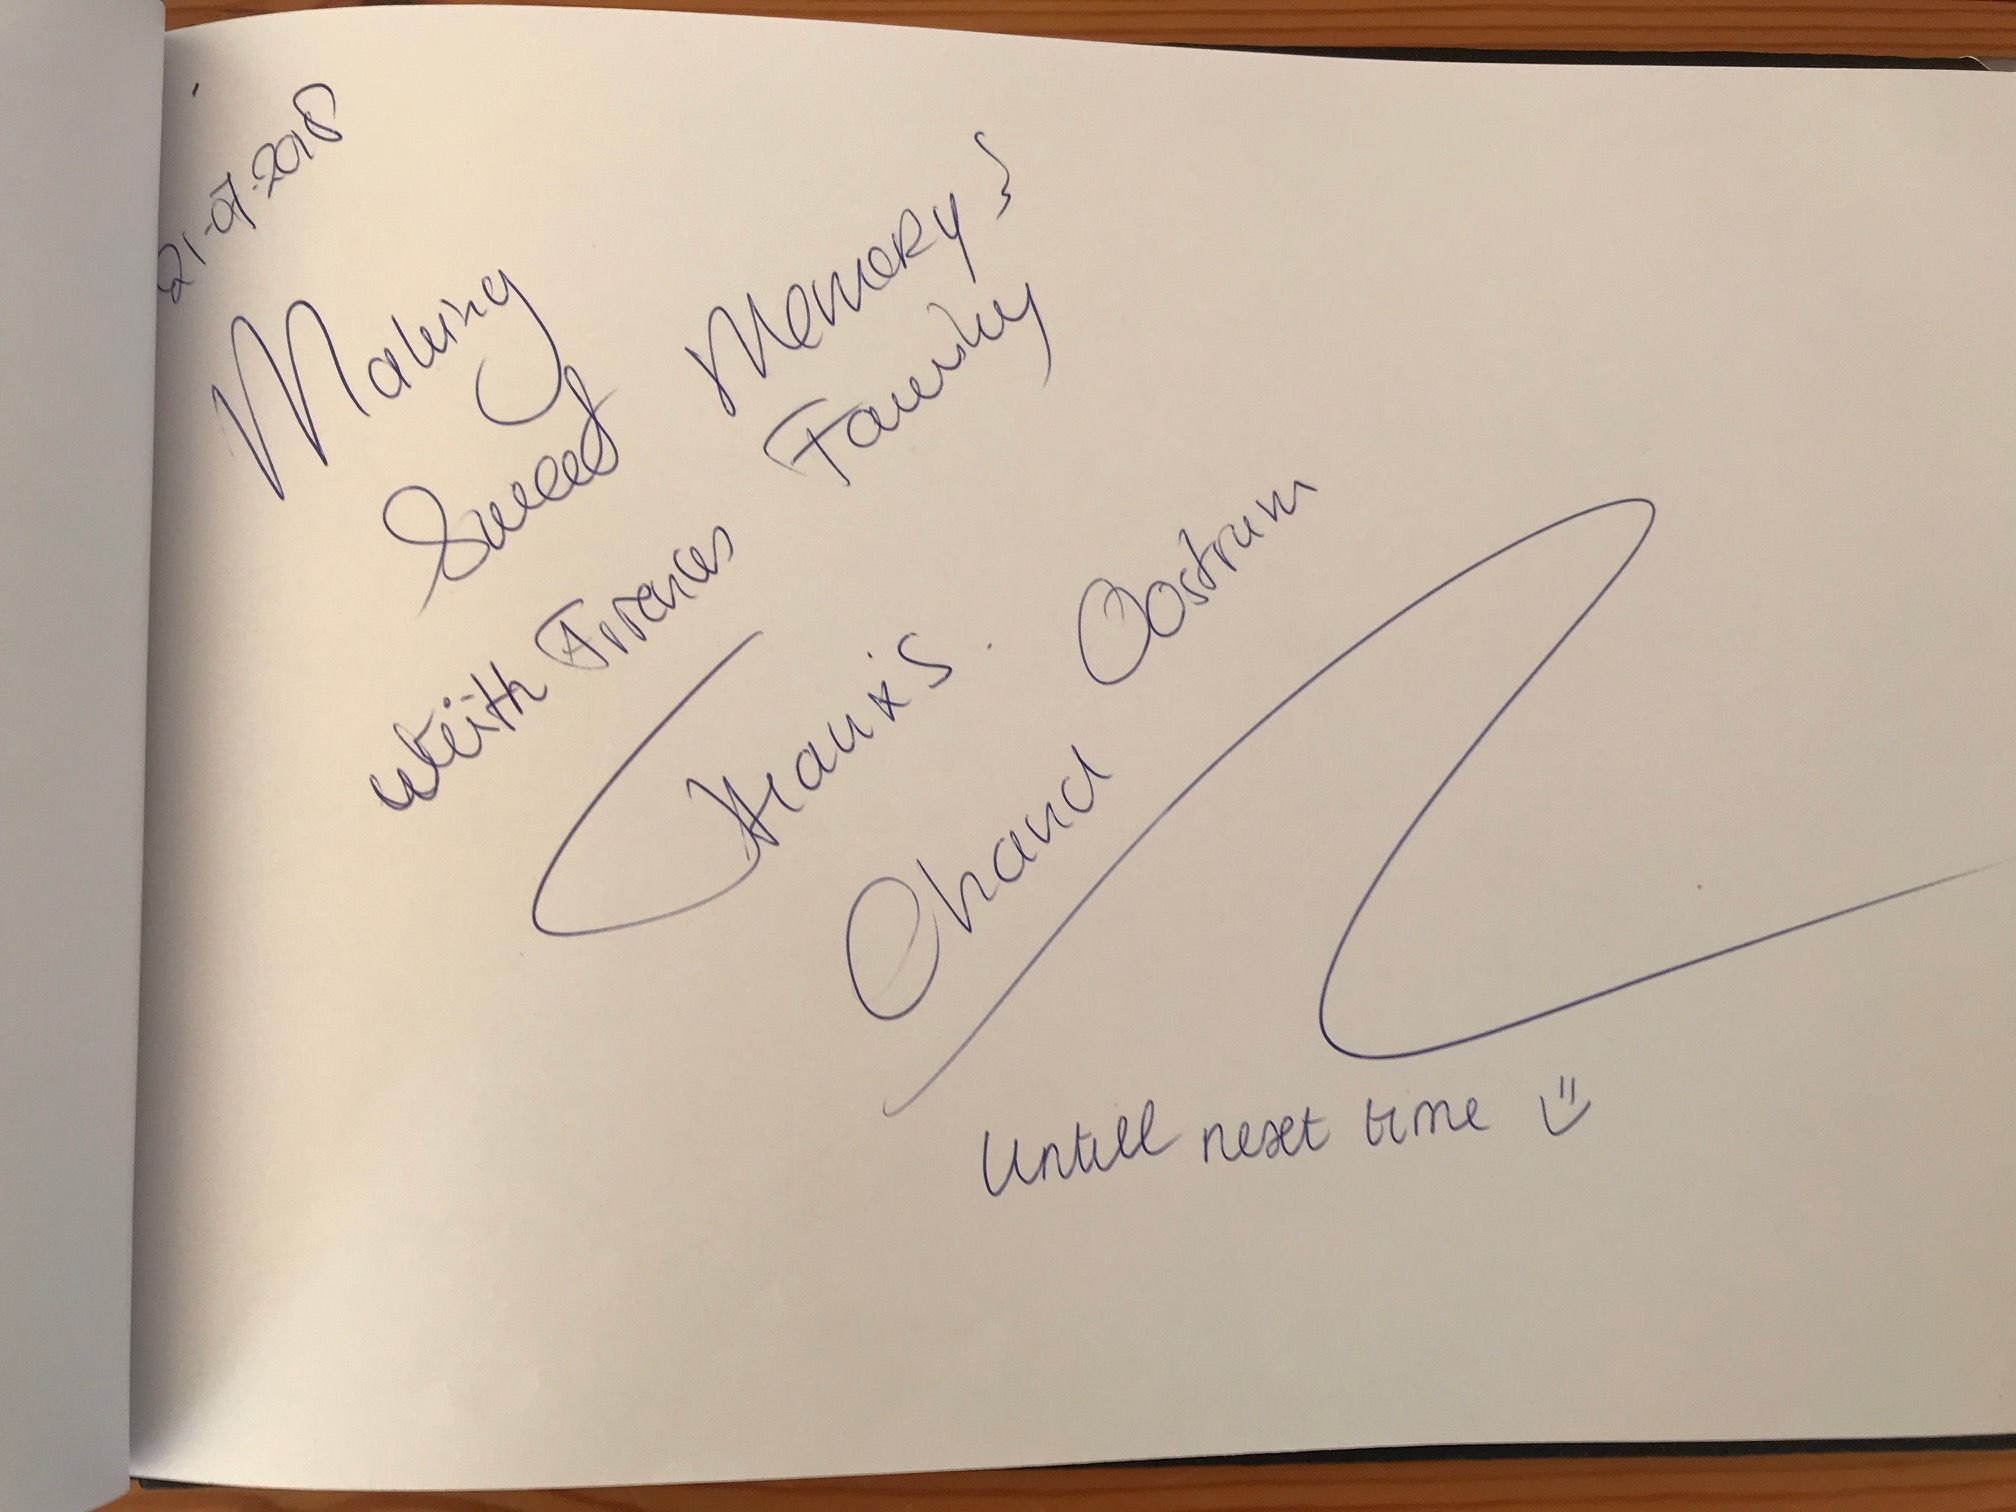 21-07-2018
Making
Sweet Memory's
With Family
Thanx's.
Chand Oostrum
Untill next time